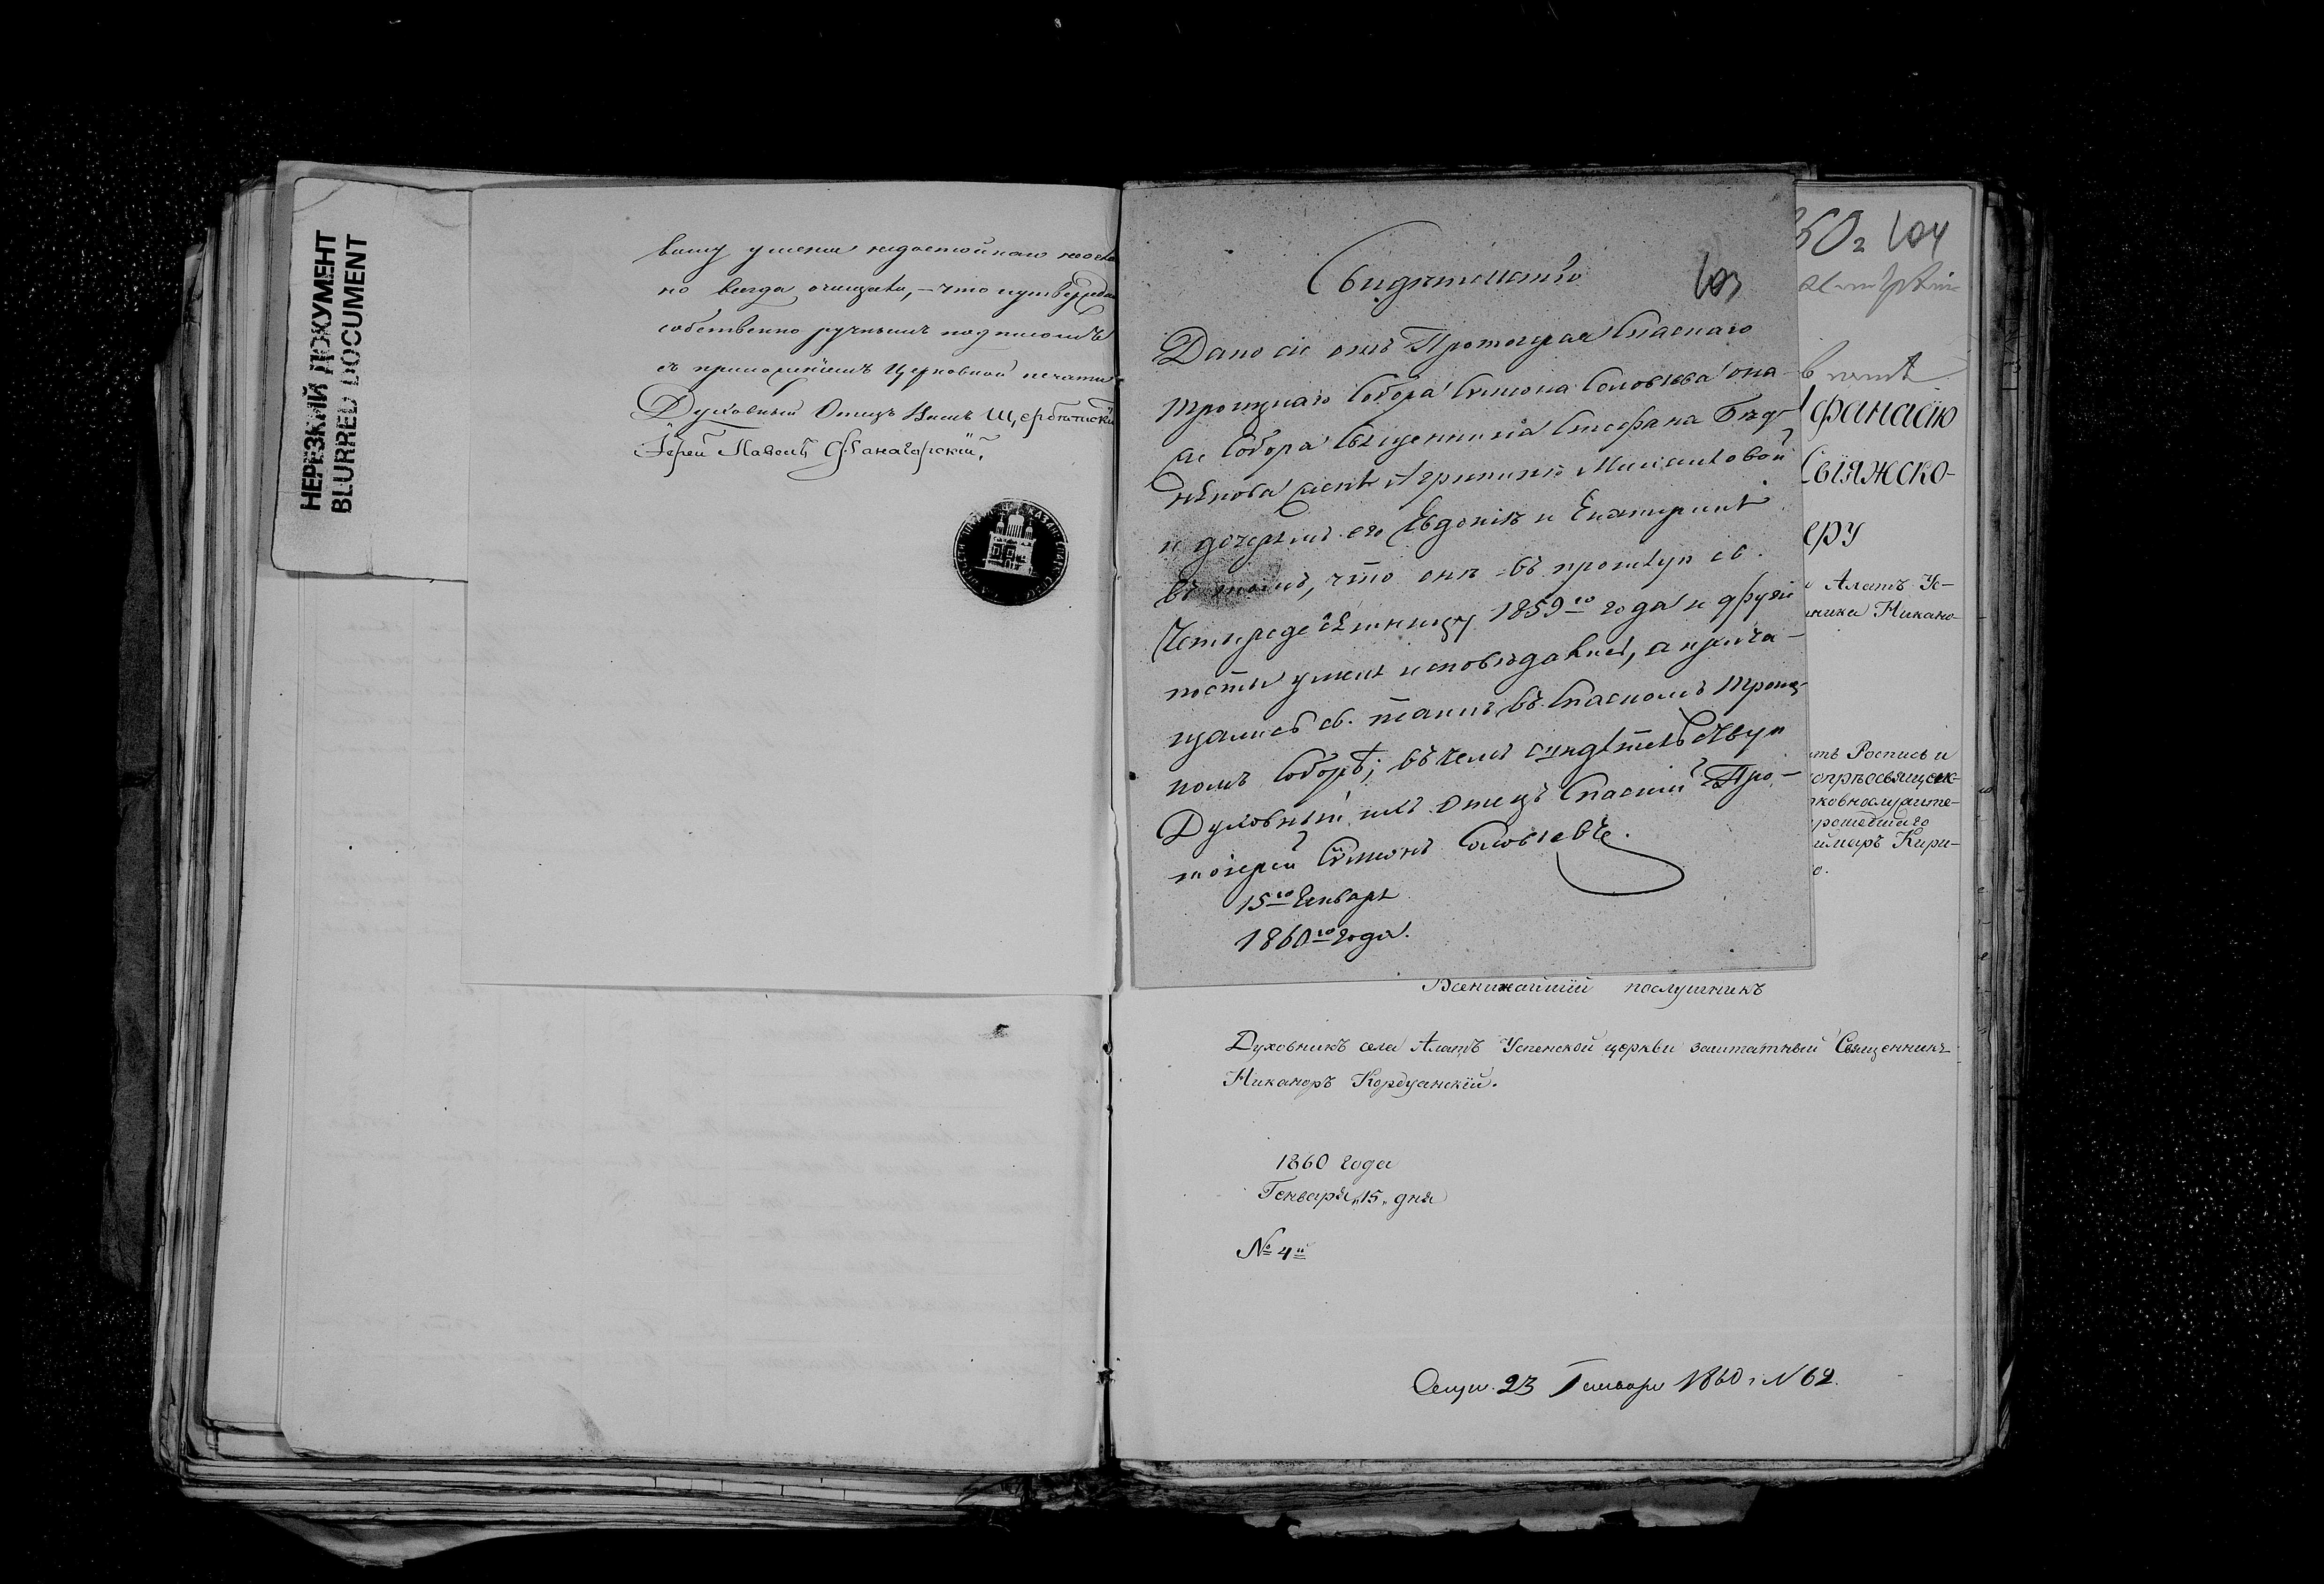 НЕРЕЗКИЙ ДОКУМЕНТ
BLURRED DOCUMENT
вину у меня недостойнаго
но всегда очищали, – что и утверждаю
собственно ручнымъ подписомъ
съ приложеніемъ Церковной печати
Духовный Отецъ Вашъ
Іерей Павелъ Фанагорскій.
Свидѣтельство
103
Дано сіе отъ Протоіерея Спаскаго
Троицкаго Собора Симеона Соловьева она-
го Собора Священника Стефана Бѣд-
някова женѣ Агрипинѣ Михайловой
и дочерямъ его Евдокіи и Екатеринѣ
въ томъ, что онѣ въ прошлую св.
Четыредесятницу 1859го года и другія
посты у меня исповѣдались, а пріоча-
щались св. таинъ въ Спаскомъ Троиц-
комъ Соборѣ; въ чемъ свидѣтельствую
Духовный ихъ Отецъ Спаскій Про-
тоіерей Симеонъ Соловьевъ.
15го Генваря
1860го года.
60г 104
фанасію
Свіяжско-
еру
Алатъ Ус-
ника Никано-
Роспись и
опреосвящен-
рковнослужите-
прошедшаго
Кири-
о.
Всенижайшій послушникъ
Духовникъ села Алатъ Успенской церкви заштатный Священникъ
Никаноръ Кордуанскій.
1860 года
Генваря „15„ дня
№ 4й
Слуш. 23 Генваря 1860 г N 62.